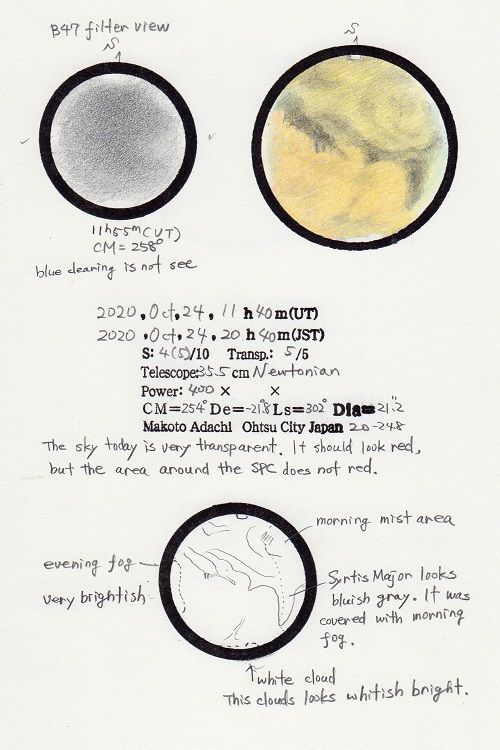 B47 filter view
S
S
11h55m(UT)
CM=258°
blue clearing is not see
2020, Oct, 24, 11 h 40 m(UT)
2020, Oct, 24, 20 h 40 m(JST)
S: 4(5)/10 Transp.: 5/5
Telescope: 35.5 cm Newtonian
Power: 400 × ×
CM=254° De=-21.8° Ls=302° Dia=21".2
Makoto Adachi Ohtsu City Japan 20-248
The sky today is very transparent. It should look red,
but the area around the SPC does not red.
morning mist area
evening fog
very brightish
Syrtis Major looks
bluish gray. It was
covered with morning
fog.
↑white cloud
This clouds looks whitish bright.